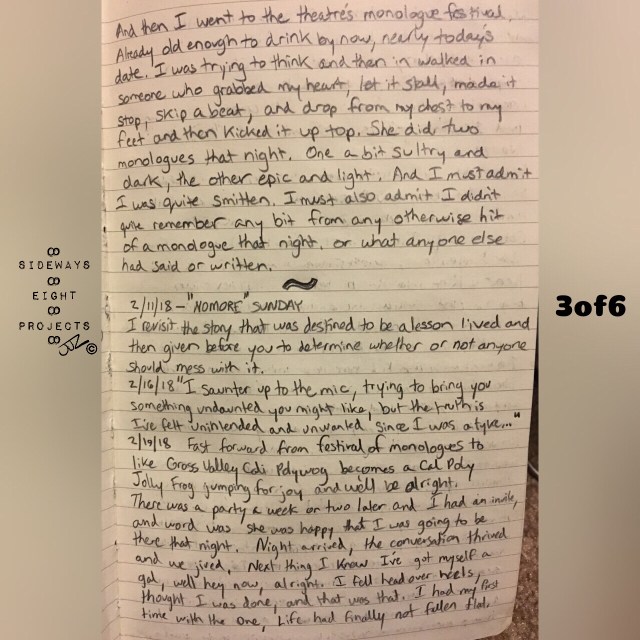 And then I went to the theatre's monologue festival.
Already old enough to drink by now, nearly today's
date. I was trying to think and then in walked in
someone who grabbed my heart, let it stall, made it
stop, skip a beat, and drop from my chest to my
feet and then kicked it up top. She did two
monologues that night. One a bit sultry and
dark, the other epic and light. And I must admit
I was quite smitten. I must also admit I didn't
quite remember any bit from any otherwise hit
of a monologue that night, or what anyone else
had said or written.
2/11/18 - "NOMORE" SUNDAY
I revisit the story that was destined to be a lesson lived and
then given before you to determine whether or not anyone
should mess with it.
2/16/18 "I saunter up to the mic, trying to bring you
something undaunted you might like, but the truth is
I've felt unintended and unwanted since I was a tyke..."
2/19/18 Fast forward from festival of monologues to
like Grass Valley Cali Polywog becomes a Cal Poly
Jolly Frog jumping for joy and we'll be alright.
There was a party a week or two later and I had an invite,
and word was she was happy that I was going to be
there that night. Night arrived, the conversation thrived
and we jived. Next thing I know I've got myself a
gal, well hey now, alright. I fell head over heels,
thought I was done, and that was that. I had my first
time with the one, Life had finally not fallen flat.
SIDEWAYS
EIGHT
PROJECTS
©
3of6